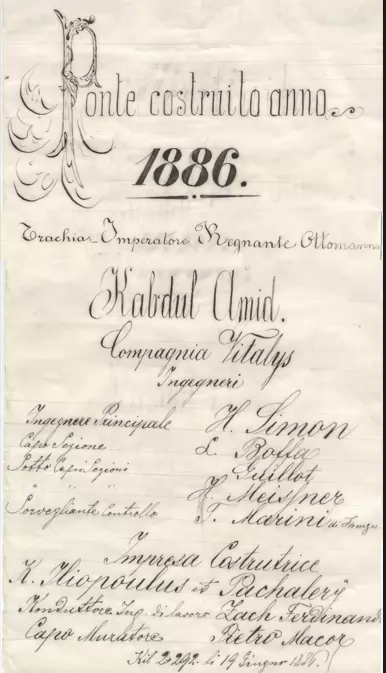 Ponte costruito anno
1886.
Trachia - Imperatore Regnante Ottomanno
Kabdul Amid.
Compagnia Vitalys
Ingegneri
Ingegnere Principale H. Simon
Capo Sezione L. Boffa
Sotto Capi Sezioni Guillot
" " " H. Meissner
Sorvegliante Controllo F. Marini di
Impresa Costrutrice
K. Iliopoulus et Pachalery
Konduttore Ing. di lavoro Zach Ferdinand
Capo Muratore Pietro Macor
Kil 2292. li 19 Giugno